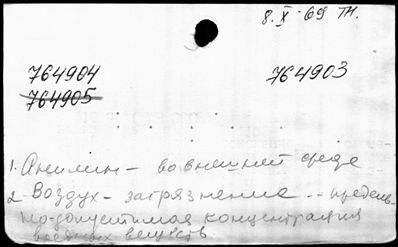 8.X-69 тн.
764904 764903
764905
1. Анилин - во внешней среде
2. Воздух - загрязнение - - предель-
но-допустимая концентрация
вредных веществ